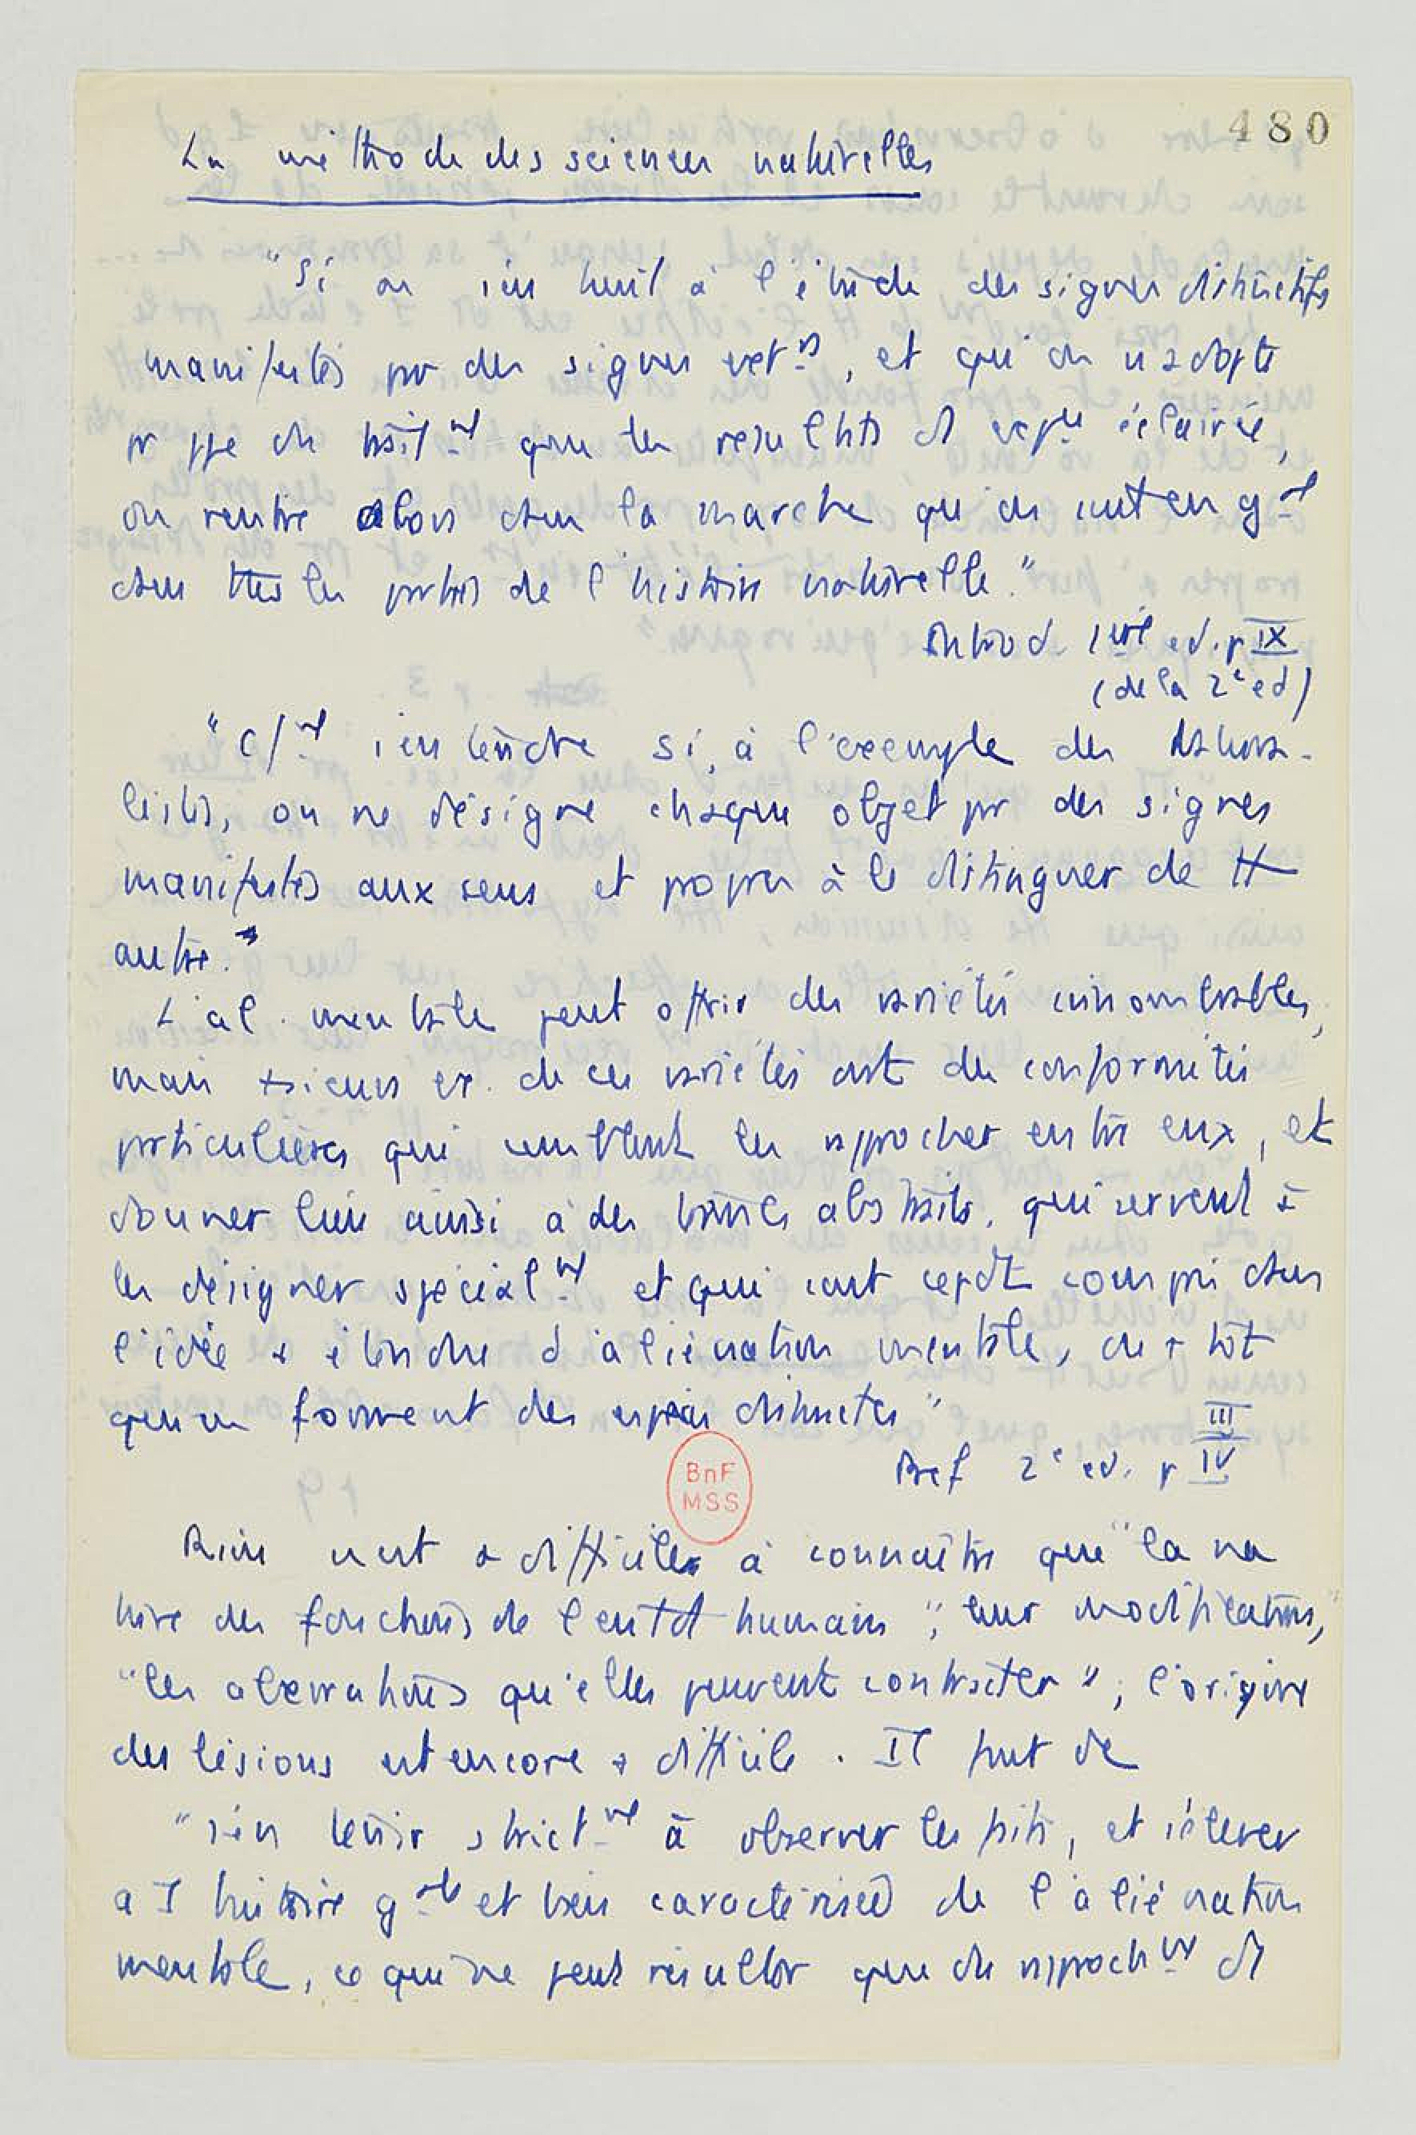 480
La méthode des sciences naturelles
"Si on s'en tient à l'étude des signes distinctifs
manifestés pr des signes ext<sup>rs</sup>, et qu'on n'adopte
pr ppe du trait<sup>nt</sup> que les résultats d'expce éclairée,
on rentre alors dans la marche qu'on suit en g<sup>al</sup>
dans ttes les parties de l'histoire naturelle."
Introd. 1<sup>ère</sup> ed. p IX
(de la 2<sup>e</sup> ed)
"C/<sup>nt</sup> s'entendre si, à l'exemple des natura-
listes, on ne désigne chaque objet pr des signes
manifestes aux sens et propres à le distinguer de tt
autre."
L'al. mentale peut offrir des variétés innombrables,
mais +sieurs ex. de ces variétés ont des conformités
particulières qui semblent les rapprocher entre eux, et
donner lieu ainsi à des termes abstraits, qui servent à
les désigner spécial<sup>nt</sup> et qui sont cepdt compris dans
l'idée + étendue d'aliénation mentale, ou + tôt
qui en forment des espèces distinctes"
III
Pref 2<sup>e</sup> ed. p IV
BnF
MSS
Rien n'est + difficile à connaître que "la na
ture des fonctions de l'entdt humain", "leurs modifications,"
"les aberrations qu'elles peuvent contracter"; l'origine
des lésions est encore + difficile. Il faut de
"s'en tenir strict<sup>nt</sup> à observer les faits, et s'élever
a 1 histoire g<sup>ale</sup> et bien caractérisée de l'aliénation
mentale, ce qui ne peut résulter que du rapproch<sup>nt</sup> d